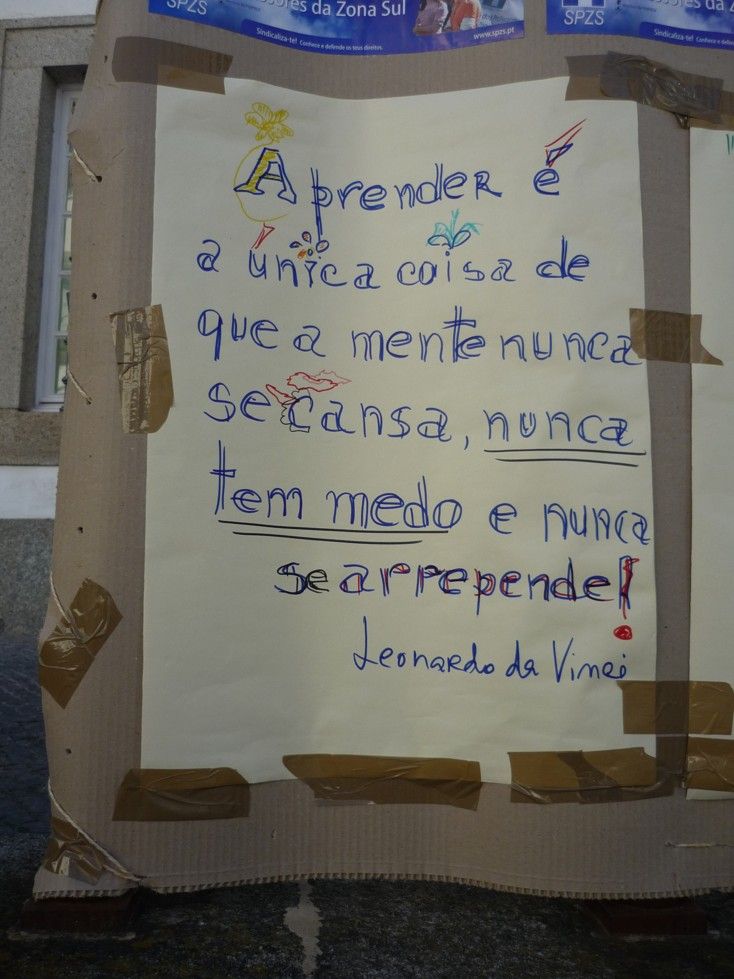 SPZS
ores da Zona Sul
Sindicaliza-te! Conhece e defende os teus direitos.
www.spzs.pt
SPZS
Sindicaliza-te! Conhece e defende
Aprender é
a única coisa de
que a mente nunca
se cansa, nunca
tem medo e nunca
se arrepende!
Leonardo da Vinci